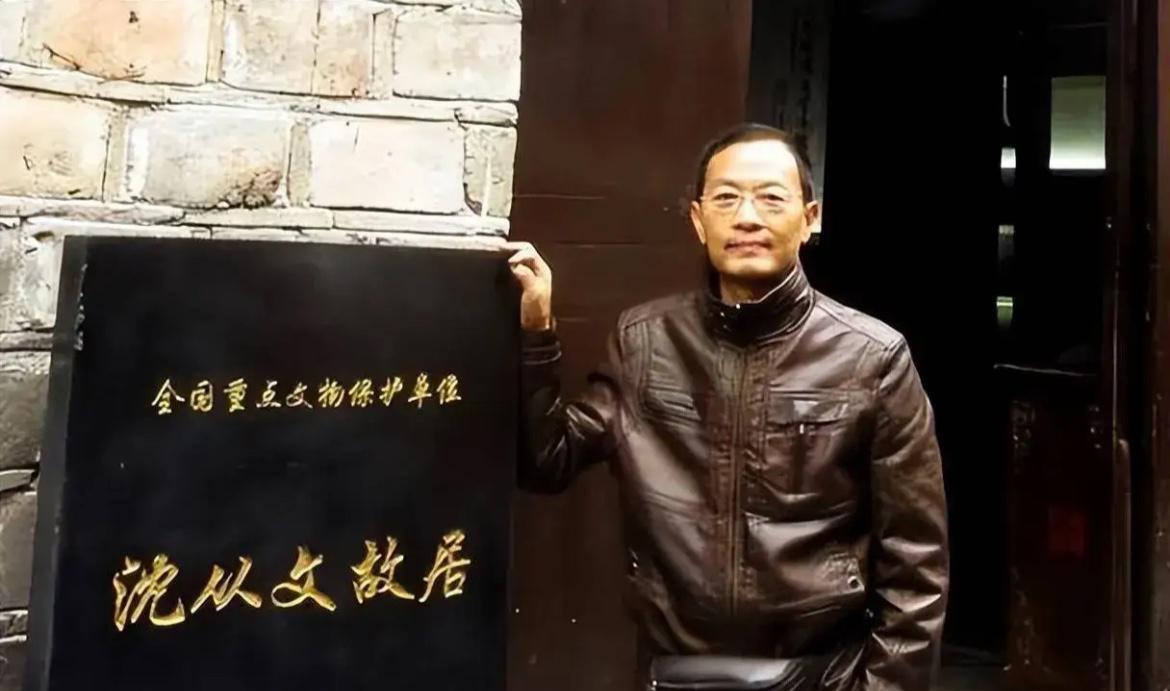 全国重点文物保护单位
沈从文故居